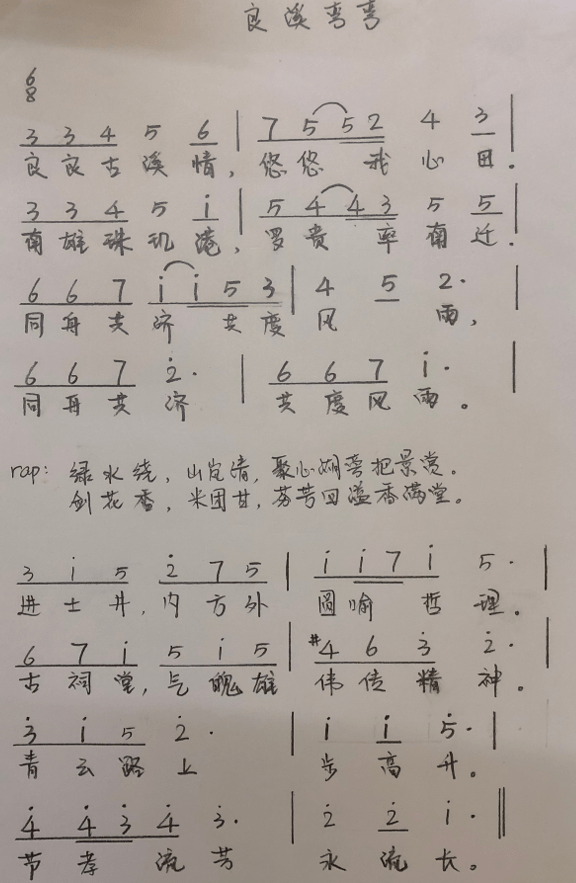 良溪弯弯
6/8
3 3 4 5 6 | 7 5 5 2 4 3 |
良良古溪情，悠悠我心田。
3 3 4 5 i | 5 4 4 3 5 5 |
南雄珠玑港，罗贵率南迁。
6 6 7 i i 5 3 | 4 5 2· |
同舟共济共度风雨，
6 6 7 2̇· | 6 6 7 i· |
同舟共济共度风雨。
rap: 绿水绕，山岚清，聚心湖旁把景赏。
剑花香，米团甘，芬芳四溢香满堂。
3 i 5 2̇ 7 5 | i i 7 i 5· |
进士井，内方外圆喻哲理。
6 7 i 5 i 5 | #4 6 3̇ 2̇· |
古祠堂，气魄雄伟传精神。
3̇ i 5 2̇· | i i 5̇· |
青云路上步高升。
4̇ 4̇ 3̇ 4̇ 3̇· | 2̇ 2̇ i· ‖
节孝流芳永流长。